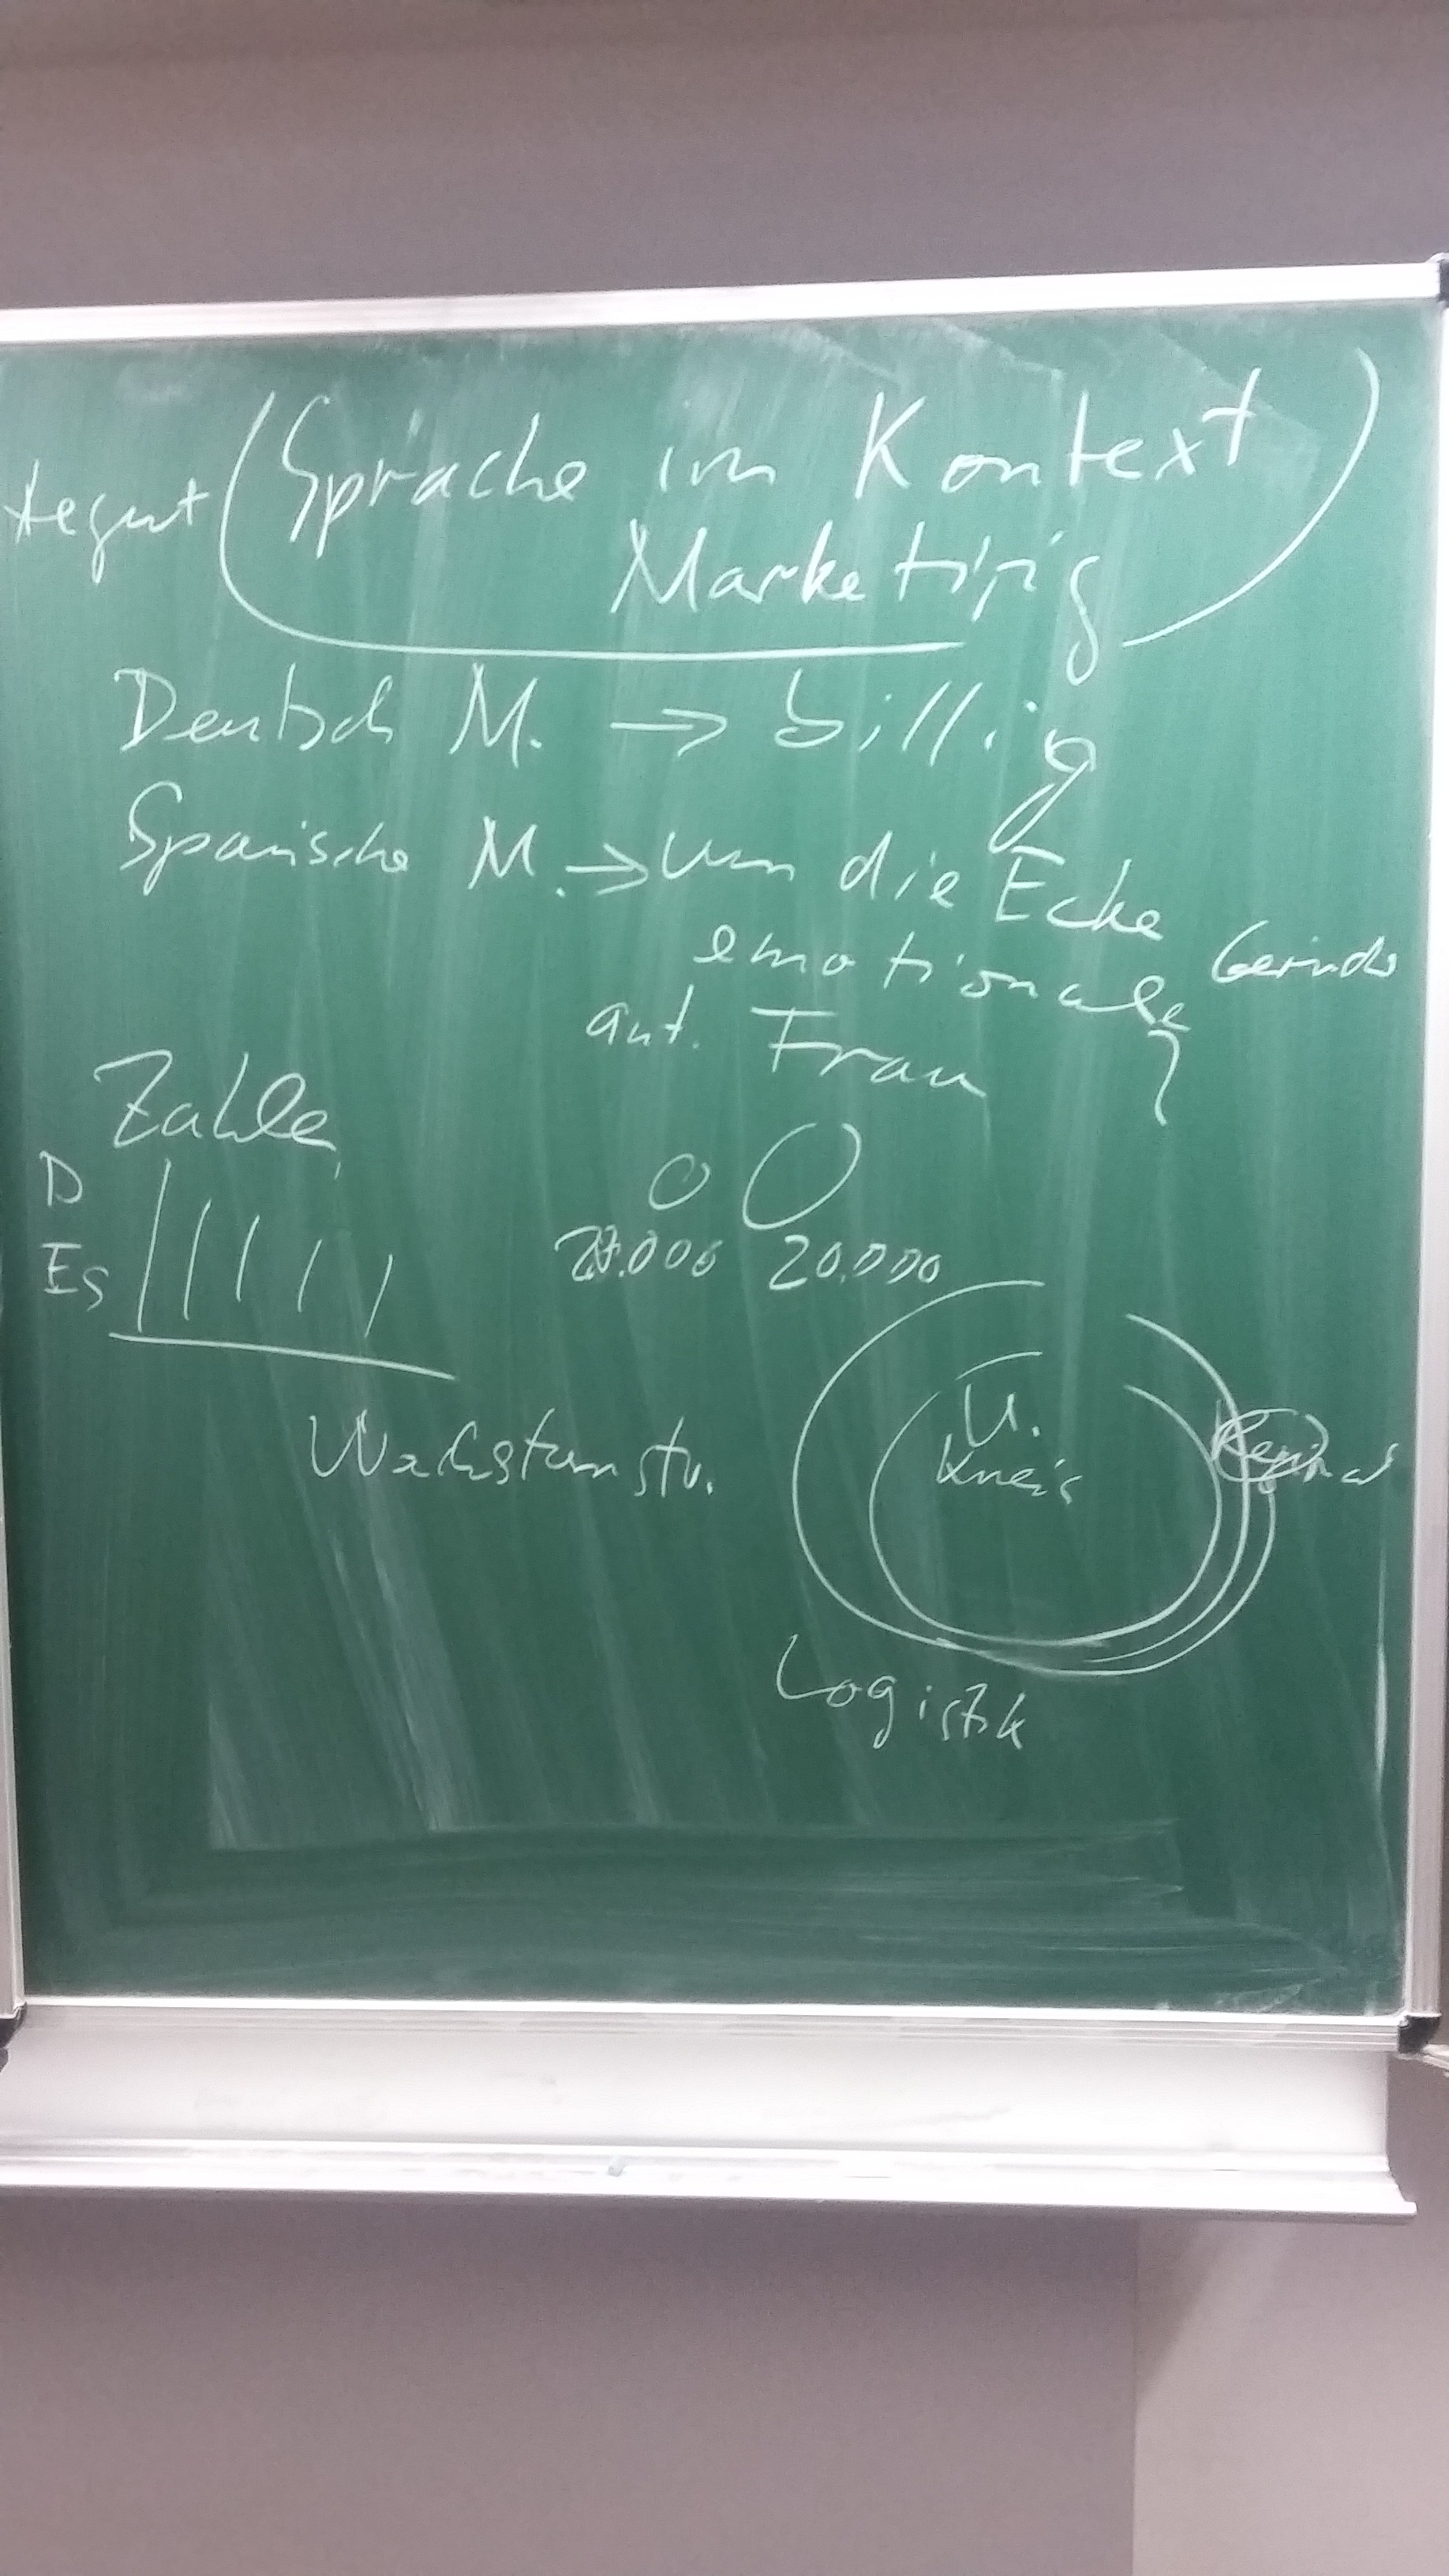 tegut Sprache im Kontext
Marketing
Deutsch M. → billig
Spanische M. → um die Ecke
emotionale
aut. Frau ?
Zahlen
D
Es
20.000
Wachstumstr.
U.
Kreis
Regional
Logistik